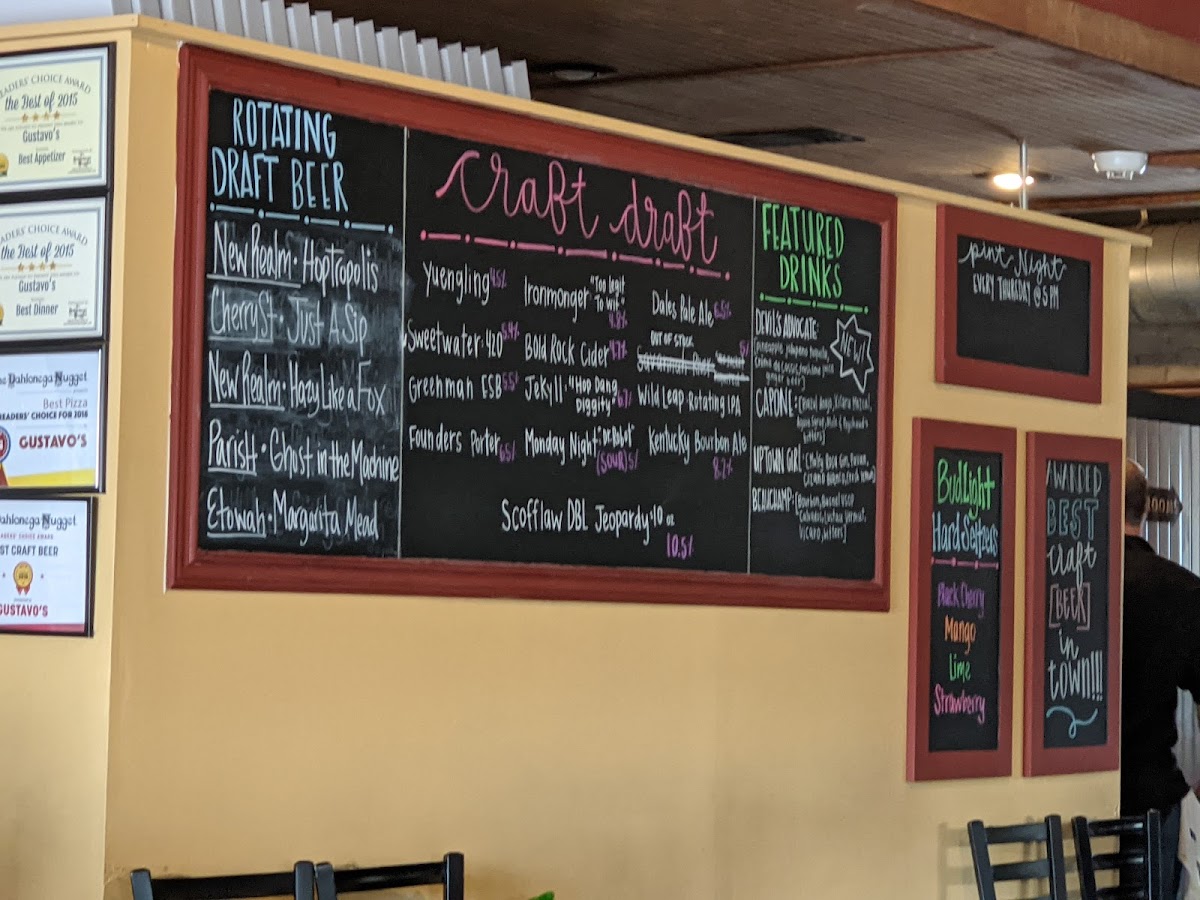 READERS' CHOICE AWARD
the Best of 2015
Gustavo's
Best Appetizer
READERS' CHOICE AWARD
the Best of 2015
Gustavo's
Best Dinner
The Dahlonega Nugget
Best Pizza
READERS' CHOICE FOR 2018
GUSTAVO'S
Dahlonega Nugget
READERS' CHOICE AWARD
BEST CRAFT BEER
GUSTAVO'S
ROTATING
DRAFT BEER
New Realm • Hoptropolis
Cherry St • Just A Sip
New Realm • Hazy Like a Fox
Parish • Ghost in the Machine
Etowah • Margarita Mead
craft draft
Yuengling 4.5%
Ironmonger "Too legit
To wit"
4.8%
Dales Pale Ale 6.5%
Sweetwater • 420 5.4%
Bold Rock Cider 4.7%
OUT OF STOCK
5%
Greenman ESB 5.5%
Jekyll • "Hop Dang
Diggity" 6.7%
Wild Leap • Rotating IPA
Founders Porter 6.5%
Monday Night "Dr. Robot"
(SOUR) 5%
Kentucky Bourbon Ale
8.2%
Scofflaw DBL Jeopardy • 10 oz
10.5%
FEATURED
DRINKS
NEW!
DEVIL'S ADVOCATE:
CAPONE:
UPTOWN GIRL:
BEAUCHAMP:
Pint Night
EVERY THURSDAY @ 5 PM
Bud Light
Hard Seltzers
Black Cherry
Mango
Lime
Strawberry
AWARDED
BEST
craft
[BEER]
in
town!!!